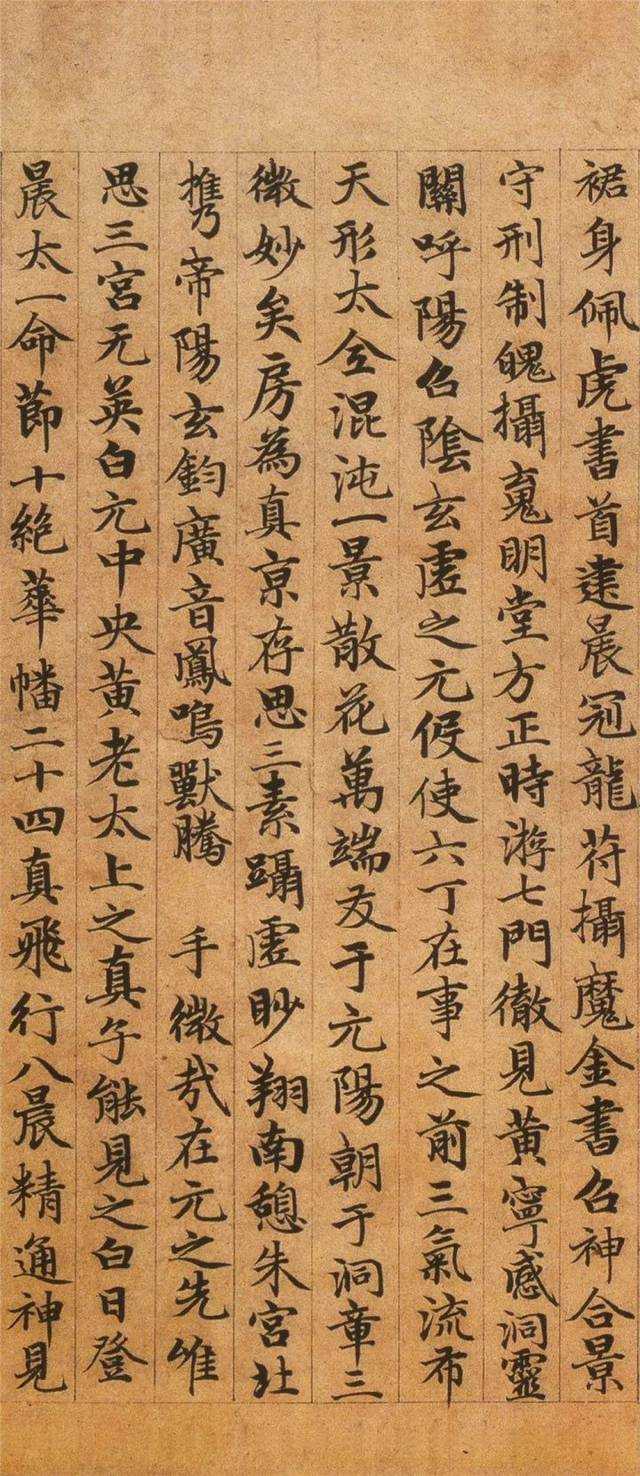 裙身佩虎書首建晨冠龍苻攝魔金書召神合景
守刑制魄攝䰟明堂方正時游七門徹見黃寧感洞靈
關呼陽召陰玄虛之元假使六丁在事之前三氣流布
天形太仝混沌一景散花萬端友于元陽朝于洞章三
微妙矣房為真京存思三素躡虛眇翔南憩朱宮北
攜帝陽玄鈞廣音鳳鳴獸騰 手微哉在元之先唯
思三宮无英白元中央黃老太上之真乃能見之白日登
晨太一命莭十絕華幡二十四真飛行八晨精通神見